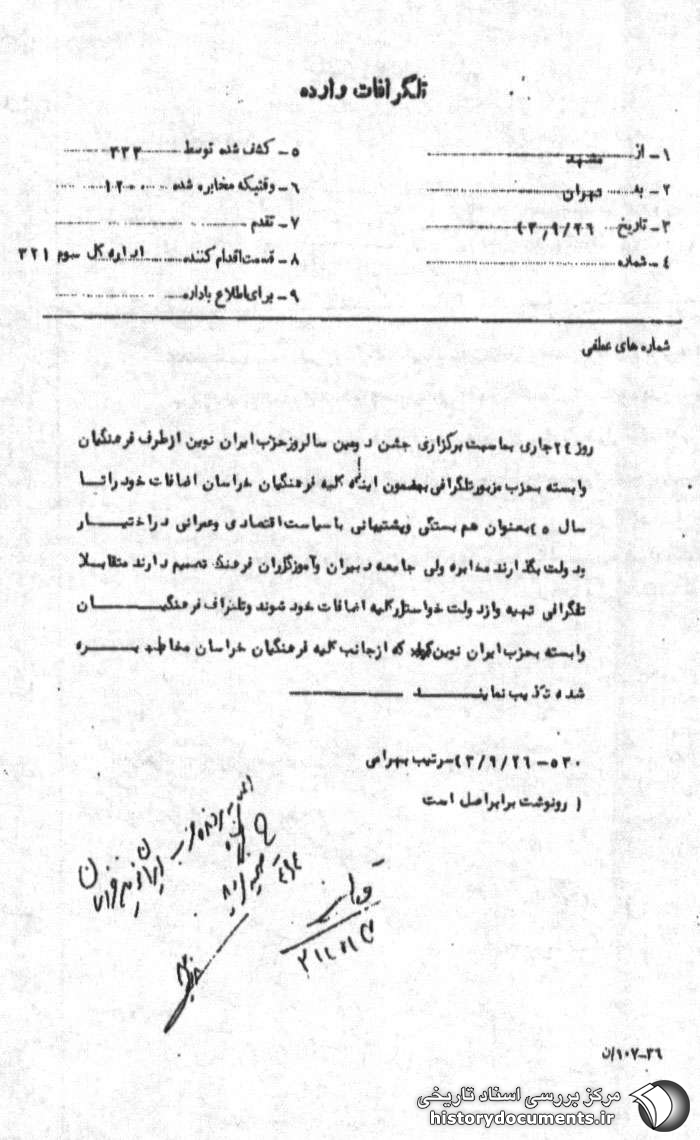 تلگرافات وارده
۱ـ از مشهد
۲ـ به تهران
۳ـ تاریخ ۴۳/۹/۲۶
۴ـ شماره
۵ـ کشف شده توسط ۳۳۳
۶ـ وقتیکه مخابره شده ۱۲۰۰
۷ـ تقدم
۸ـ قسمت اقدام کننده اداره کل سوم ۳۲۱
۹ـ برای اطلاع باداره
شماره های عطفی
روز ۲۴ جاری بمناسبت برگزاری جشن دومین سالروز حزب ایران نوین از طرف فرهنگیان
وابسته بحزب مزبور تلگرافی بمضمون اینکه کلیه فرهنگیان خراسان اضافات خود را تا
سال ۴۵ بعنوان هم بستگی وپشتیبانی با سیاست اقتصادی وعمرانی در اختیار
ودولت بگذارند مخابره ولی جامعه دبیران وآموزگاران فرهنگ تصمیم دارند متقابلا
تلگرافی تهیه واز دولت خواستار کلیه اضافات خود شوند وتلگراف فرهنگیان
وابسته بحزب ایران نوین که از جانب کلیه فرهنگیان خراسان مخابره
شده تکذیب نمایند
۵۳۰ـ ۴۳/۹/۲۶ سرتیپ بهرامی
رونوشت برابر اصل است
۳۶-۱۰۷/ن
مرکز بررسی اسناد تاریخی
historydocuments.ir